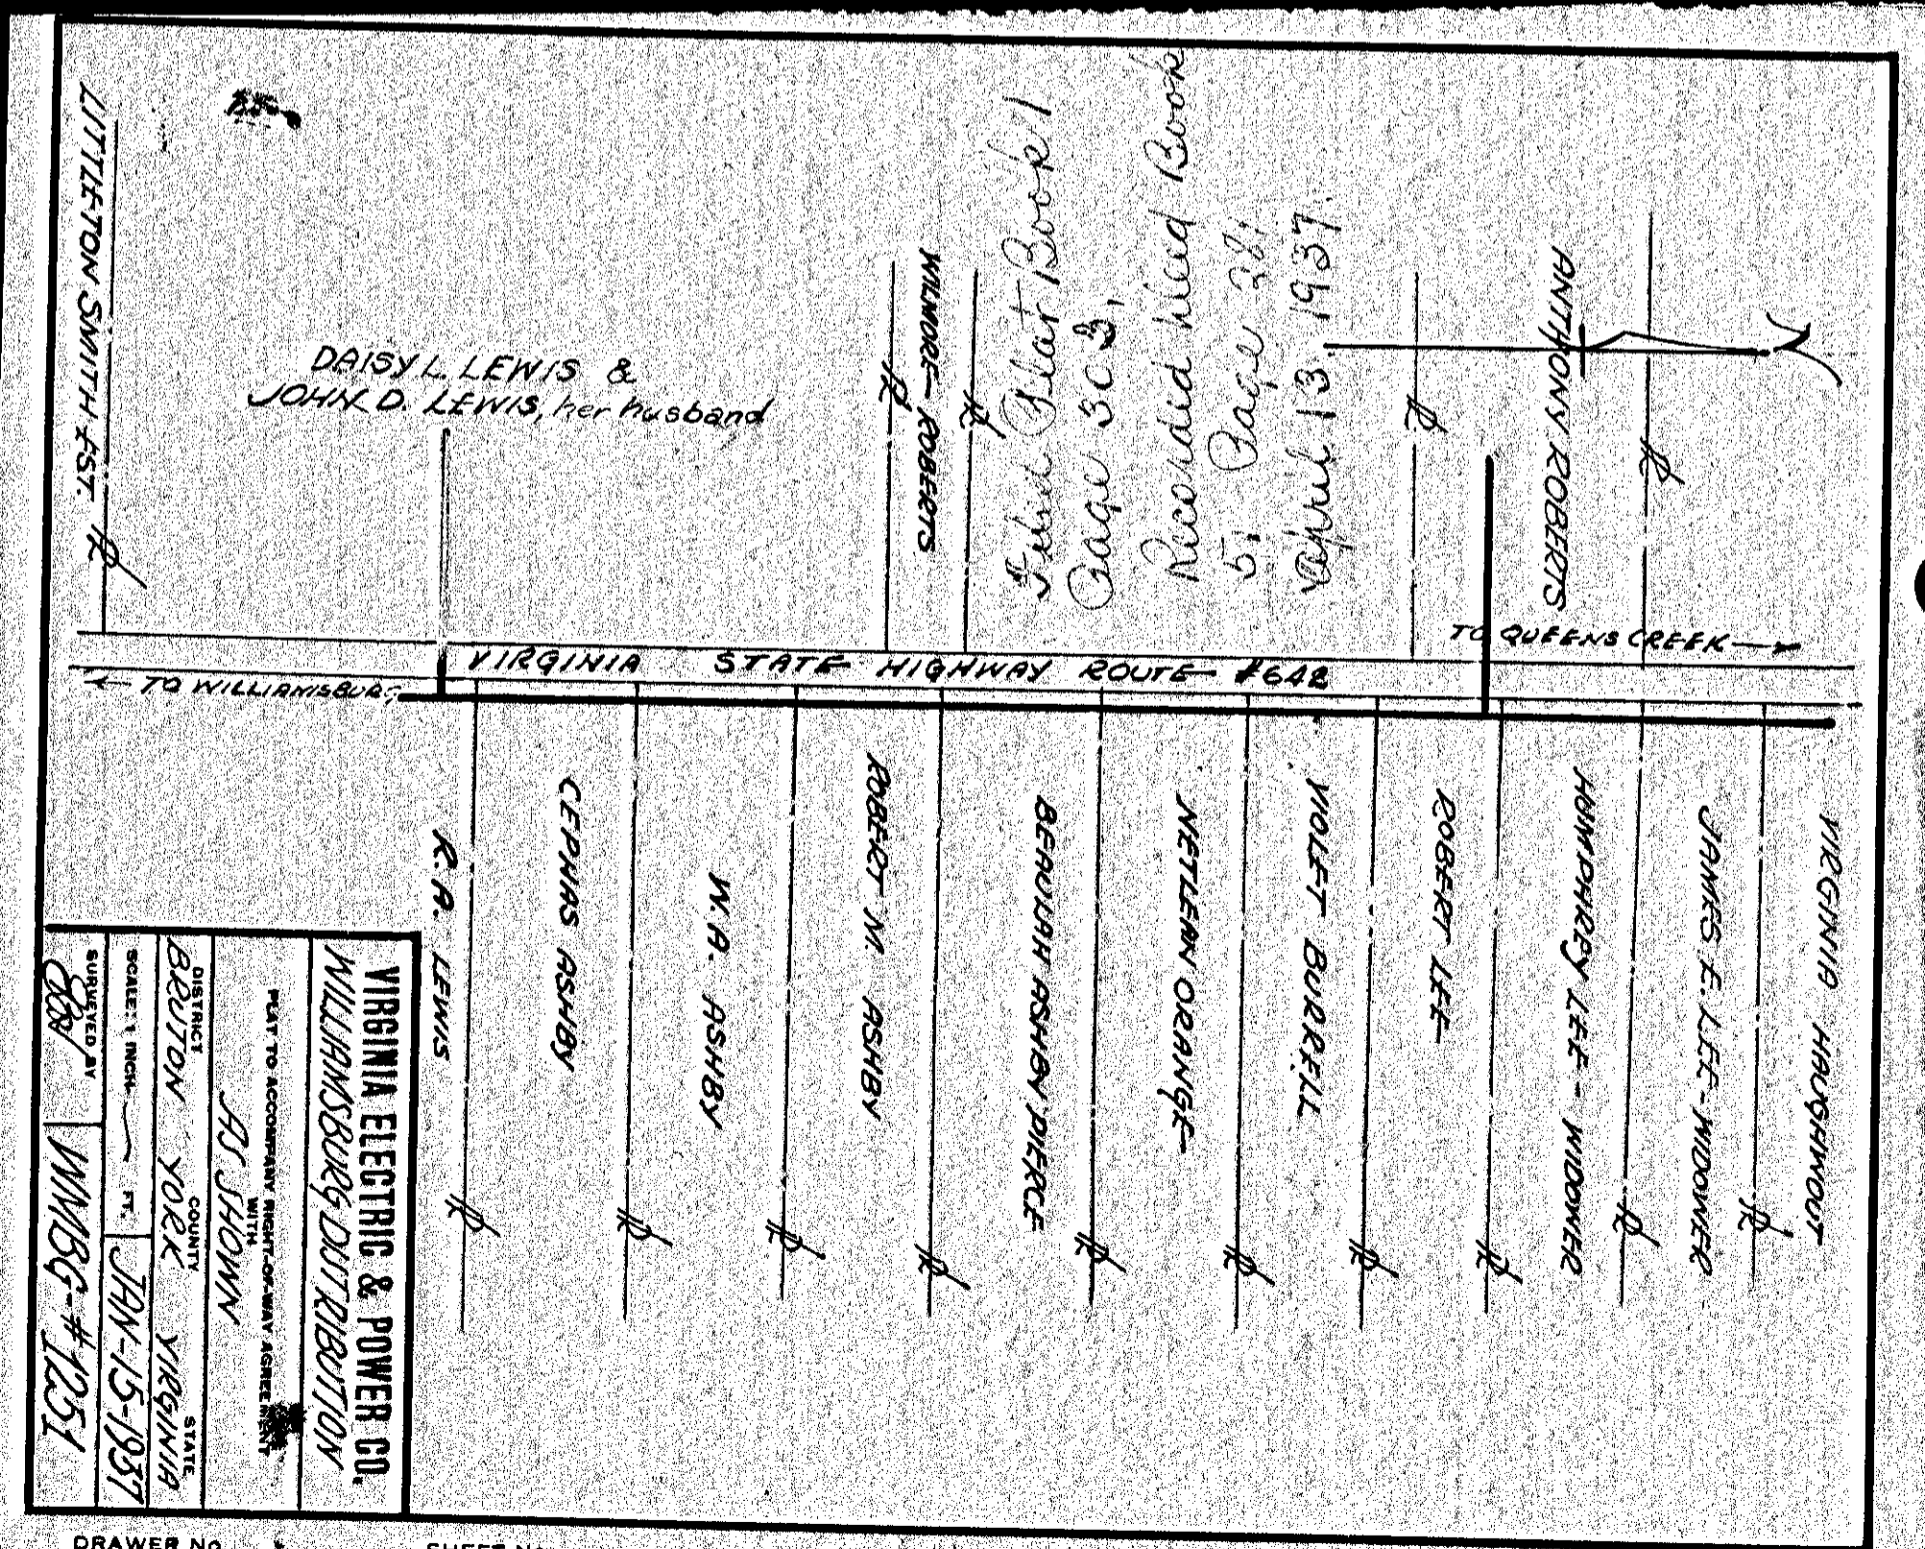 LITTLETON SMITH EST.
DAISY L. LEWIS &
JOHN D. LEWIS, her husband
WILMORE ROBERTS
Filed Plat Book 1
Page 303,
Recorded Deed Book
51 Page 281
April 13, 1937.
ANTHONY ROBERTS
TO QUEENS CREEK
VIRGINIA STATE HIGHWAY ROUTE #642
TO WILLIAMSBURG
R.A. LEWIS
CEPHAS ASHBY
W.A. ASHBY
ROBERT N. ASHBY
BEAULAH ASHBY PIERCE
NETLEAN ORANGE
VIOLET BURRELL
ROBERT LEE
HUMPHREY LEE - WIDOWER
JAMES E. LEE - WIDOWER
VIRGINIA HAUGHWOUT
VIRGINIA ELECTRIC & POWER CO.
WILLIAMSBURG DISTRIBUTION
PLAT TO ACCOMPANY RIGHT-OF-WAY AGREEMENT
WITH
AS SHOWN
DISTRICT COUNTY STATE
BRUTON YORK VIRGINIA
SCALE: 1 INCH FT. JAN-15-1937
SURVEYED BY
WMBG-#1251
DRAWER NO.
SHEET NO.